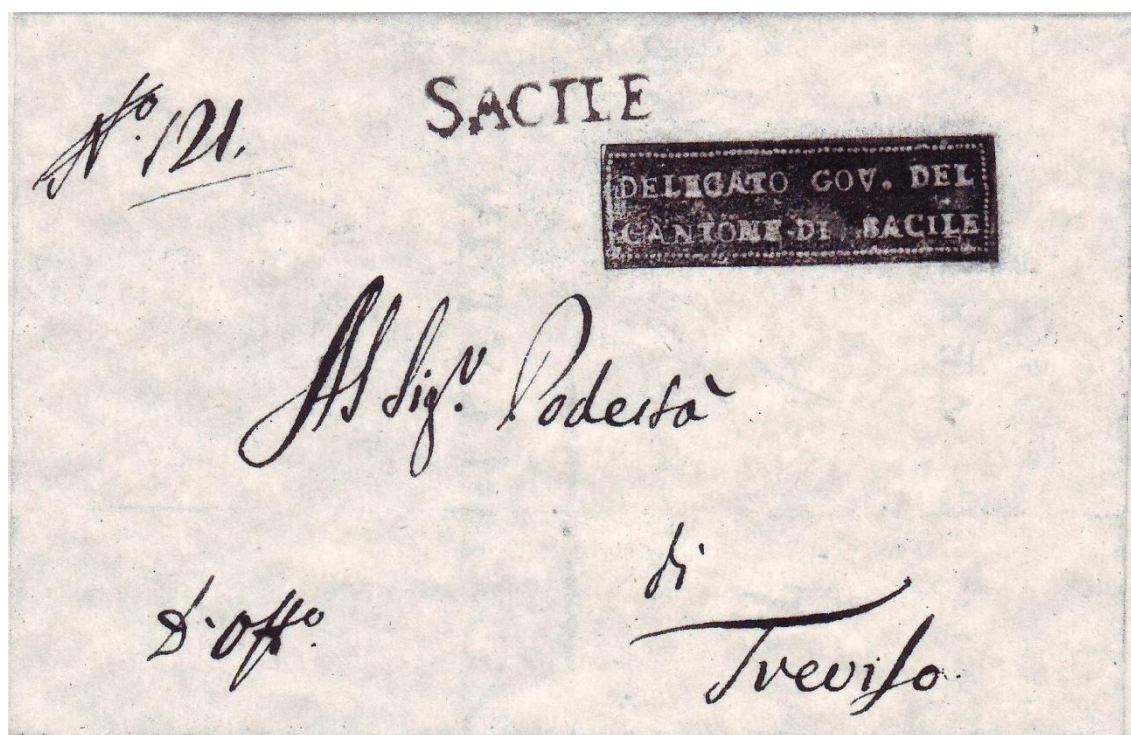 Nº. 121.
SACILE
DELEGATO GOV. DEL
CANTONE DI SACILE
Al Sigr. Podestà
di
D'Offo.
Treviso.